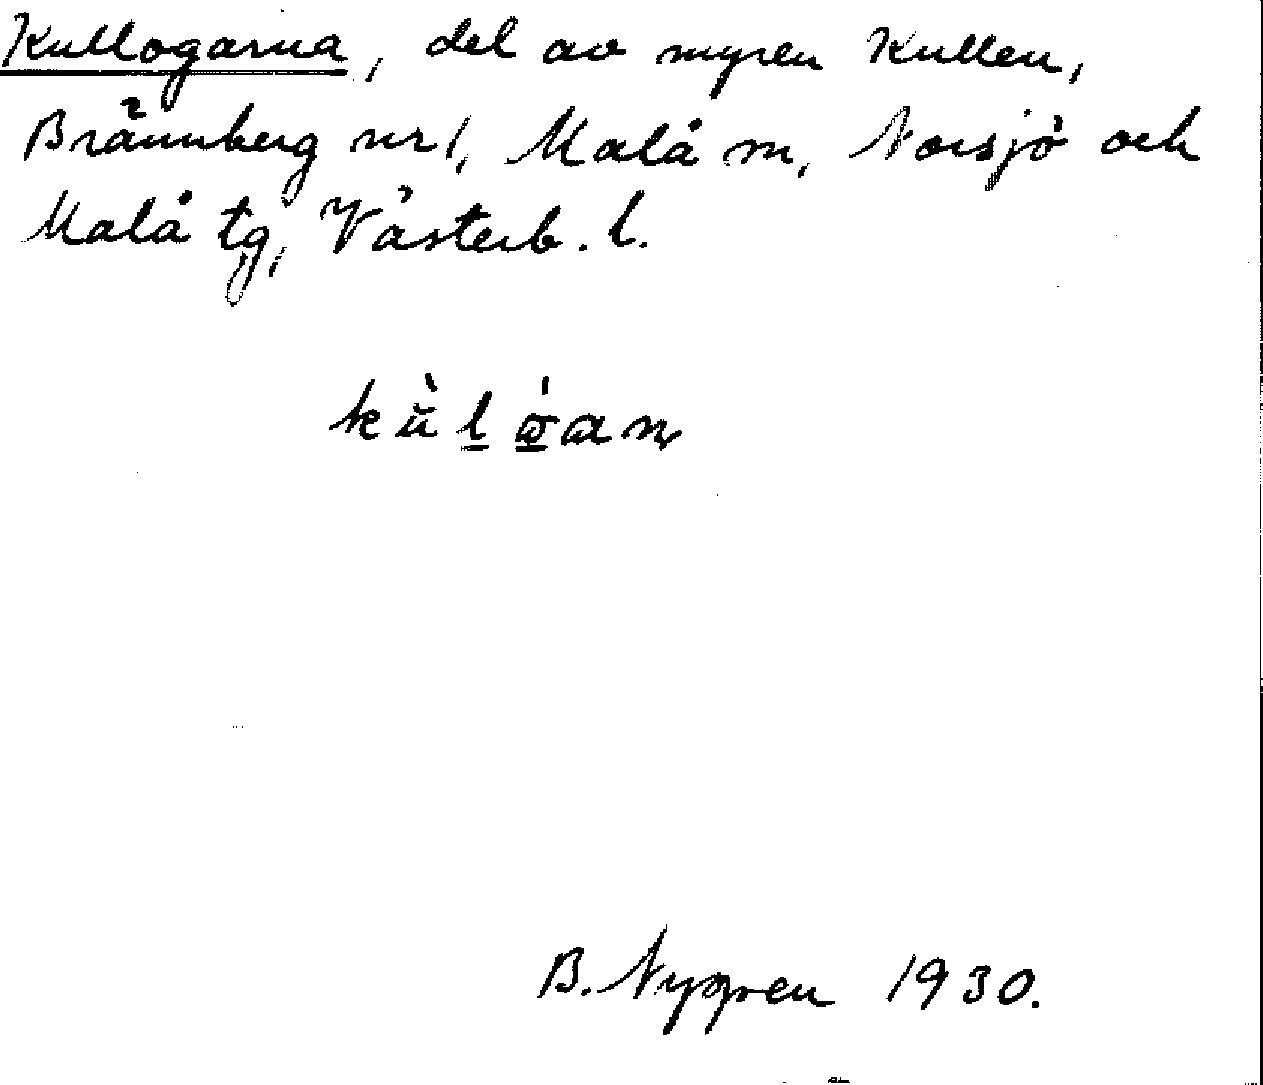 Kullogarna, del av myren Kullen,
Brännberg nr 1, Malå m, Norsjö och
Malå tg, Västerb. l.
B. Nygren 1930.